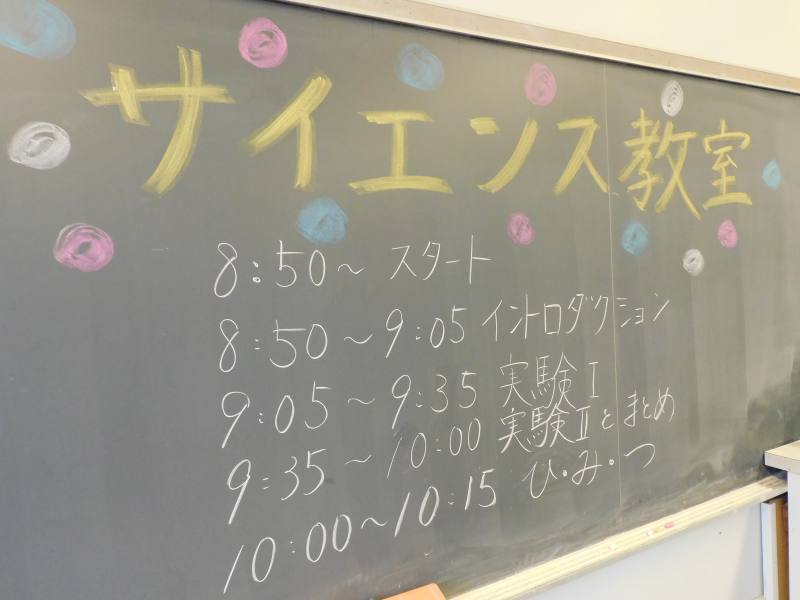 サイエンス教室
8:50～ スタート
8:50～9:05 イントロダクション
9:05～9:35 実験Ⅰ
9:35～10:00 実験Ⅱとまとめ
10:00～10:15 ひ・み・つ